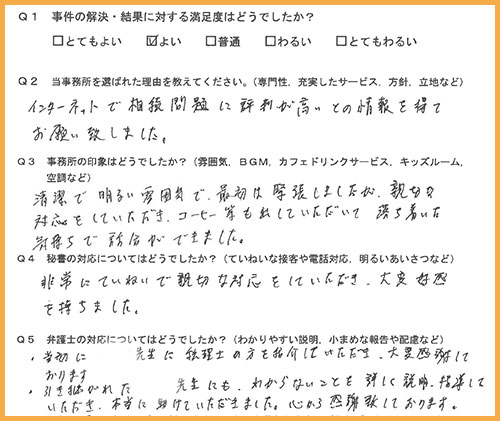 Q1 事件の解決・結果に対する満足度はどうでしたか？
□とてもよい ☑よい □普通 □わるい □とてもわるい
Q2 当事務所を選ばれた理由を教えてください。（専門性，充実したサービス，方針，立地など）
インターネットで相続問題に評判が高いとの情報を得て
お願い致しました。
Q3 事務所の印象はどうでしたか？（雰囲気，ＢＧＭ，カフェドリンクサービス，キッズルーム，
空調など）
清潔で明るい雰囲気で、最初は緊張しましたが、親切な
対応をしていただき、コーヒー等も出していただいて落ち着いた
気持ちで話合ができました。
Q4 秘書の対応についてはどうでしたか？（ていねいな接客や電話対応、明るいあいさつなど）
非常にていねいで親切な対応をしていただき、大変好感
を持ちました。
Q5 弁護士の対応についてはどうでしたか？（わかりやすい説明，小まめな報告や配慮など）
・当初に 先生に税理士の方を紹介していただき、大変感謝して
おります
・引き継がれた 先生にも、わからないことを詳しく説明、指導して
いただき、本当に助けていただきました。心から感謝致しております。